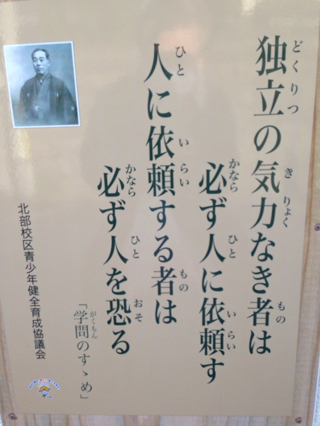 独立の気力なき者は
必ず人に依頼す
人に依頼する者は
必ず人を恐る
「学問のすゝめ」
北部校区青少年健全育成協議会